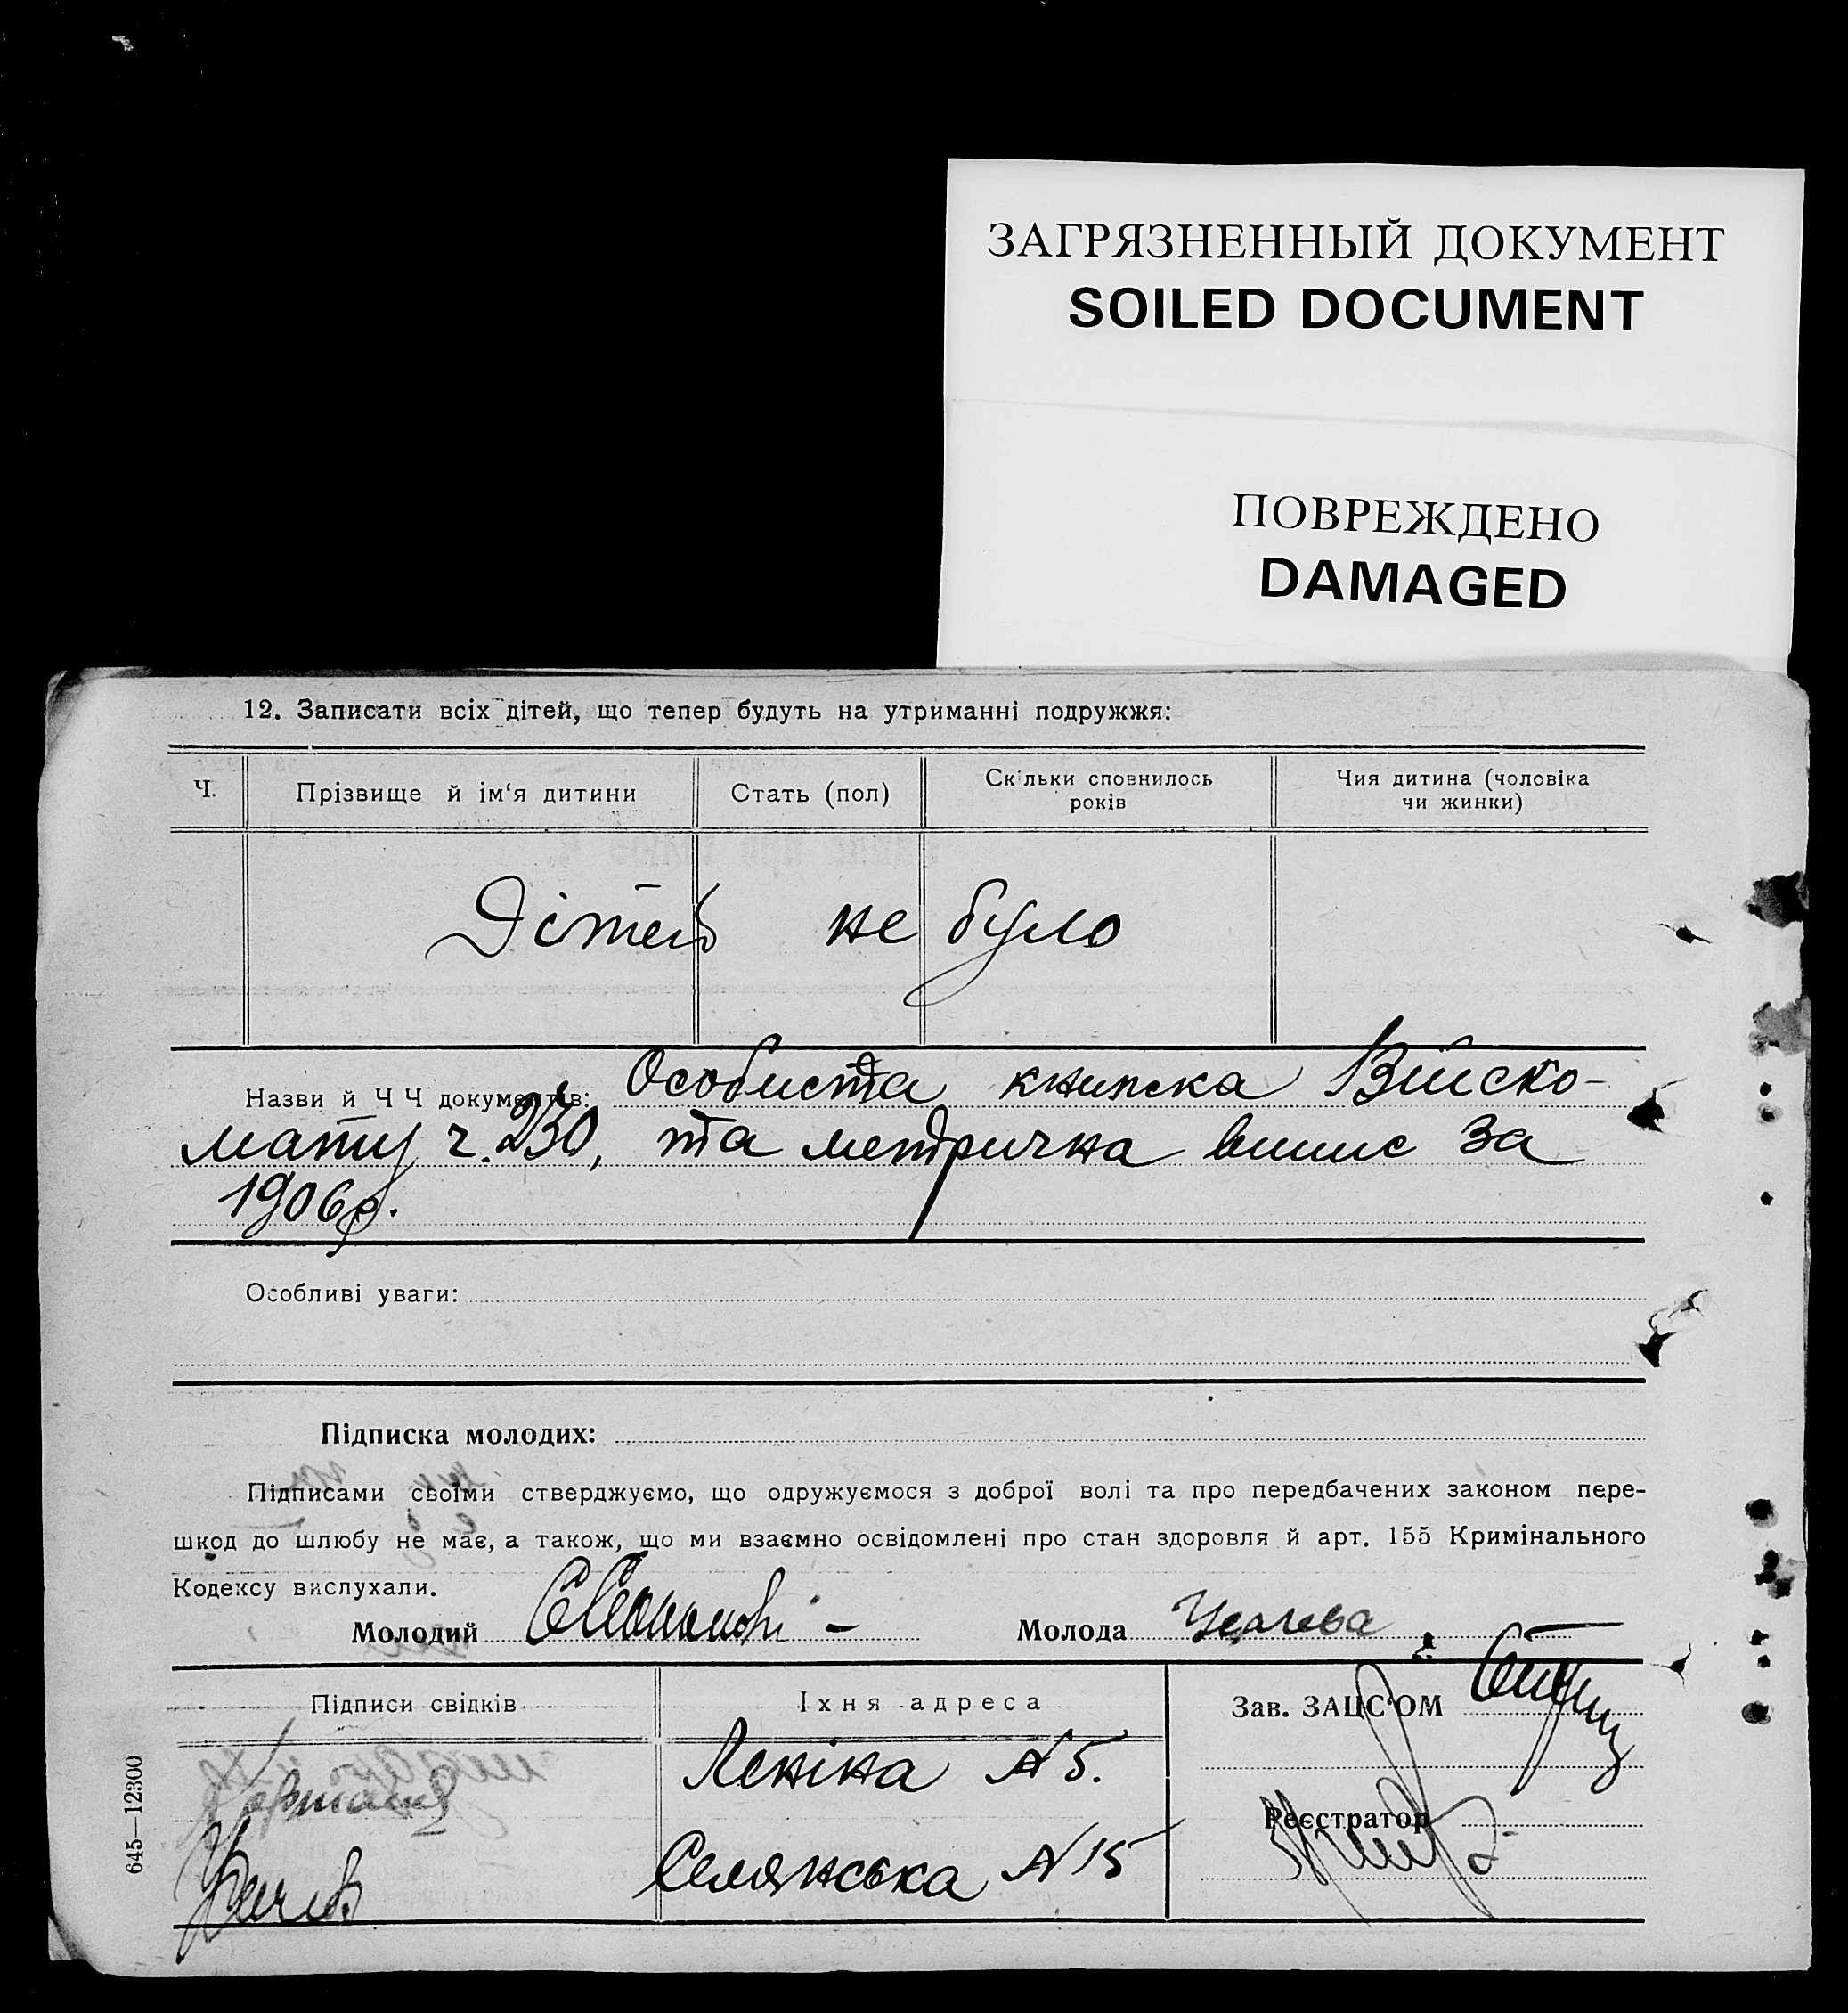 ЗАГРЯЗНЕННЫЙ ДОКУМЕНТ
SOILED DOCUMENT
ПОВРЕЖДЕНО
DAMAGED
12. Записати всіх дітей, що тепер будуть на утриманні подружжя:
Ч.
Прізвище й ім'я дитини
Стать (пол)
Скільки сповнилось
років
Чия дитина (чоловіка
чи жинки)
Дітей не було
Назви й Ч Ч документів: Особиста книжка Військо-
мату ч. 230, та метрична випис за
1906 р.
Особливі уваги:
Підписка молодих:
Підписами своїми стверджуємо, що одружуємося з доброї волі та про передбачених законом пере-
шкод до шлюбу не має, а також, що ми взаємно освідомлені про стан здоровля й арт. 155 Кримінального
Кодексу вислухали.
Молодий
Молода
Підписи свідків
Їхня адреса
Зав. ЗАЦС'ОМ
Леніна № 5.
Реєстратор
Селянська № 15
645—12300